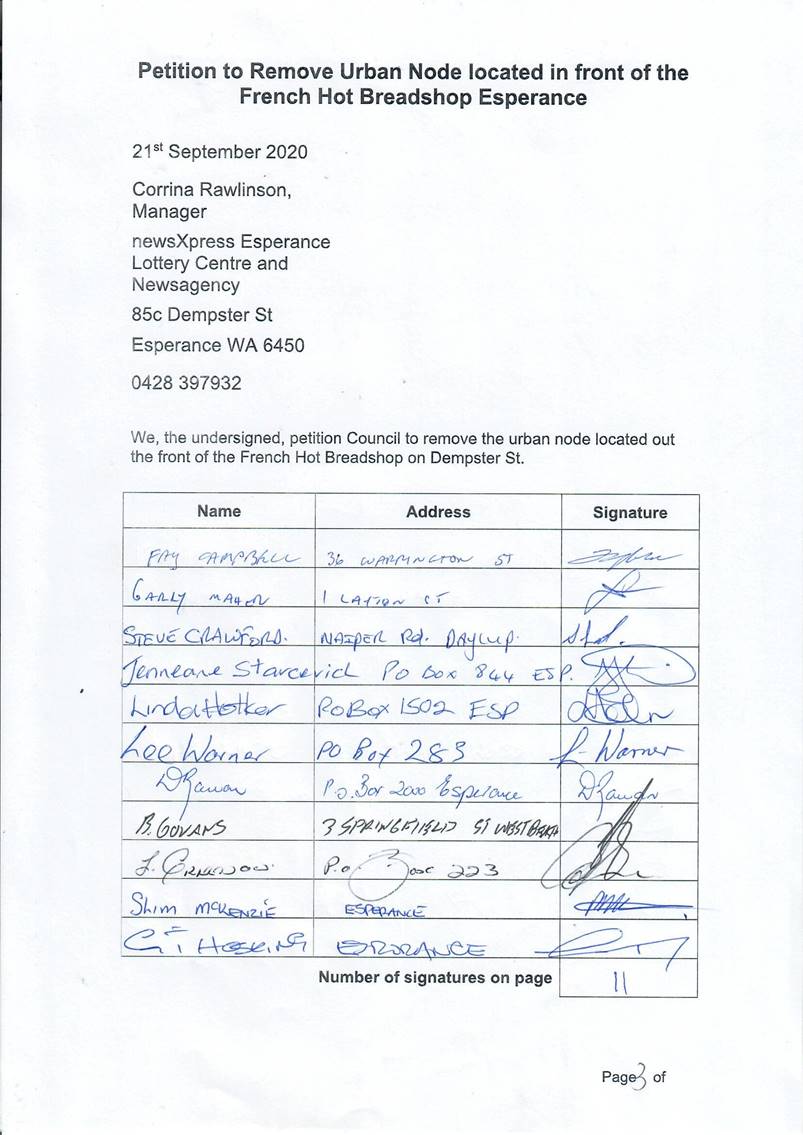 Petition to Remove Urban Node located in front of the
French Hot Breadshop Esperance
21st September 2020
Corrina Rawlinson,
Manager
newsXpress Esperance
Lottery Centre and
Newsagency
85c Dempster St
Esperance WA 6450
0428 397932
We, the undersigned, petition Council to remove the urban node located out
the front of the French Hot Breadshop on Dempster St.
Name Address Signature
FAY CAMPBELL 36 WARMINGTON ST
GARRY 1 CT
STEVE CRAWFORD. NAIPER Rd. DAYLUP.
Jenneane Starcevich PO Box 844 ESP.
Linda Hotker PO Box 1502 ESP
Lee Warner PO Box 283 L Warner
P.O. Box 2000 Esperance
B. GOVANS 3 SPRINGFIELD ST WEST BEACH
P.O. Box 223
Shim MCKENZIE ESPERANCE
HOSKING
Number of signatures on page 11
Page 3 of